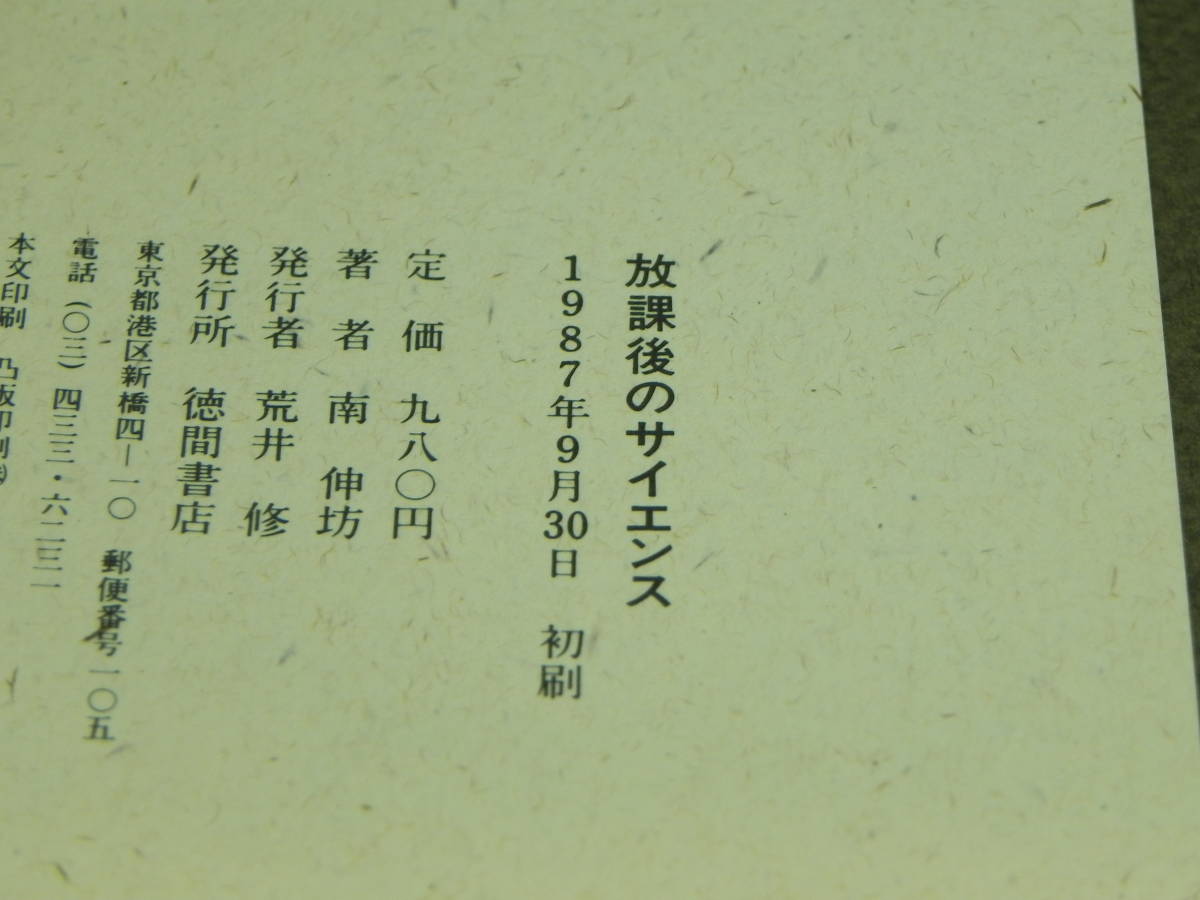 放課後のサイエンス
1987年9月30日 初刷
定価 九八〇円
著者 南 伸坊
発行者 荒井 修
発行所 徳間書店
東京都港区新橋四―一〇 郵便番号一〇五
電話（〇三）四三三・六二三一
本文印刷 凸版印刷㈱